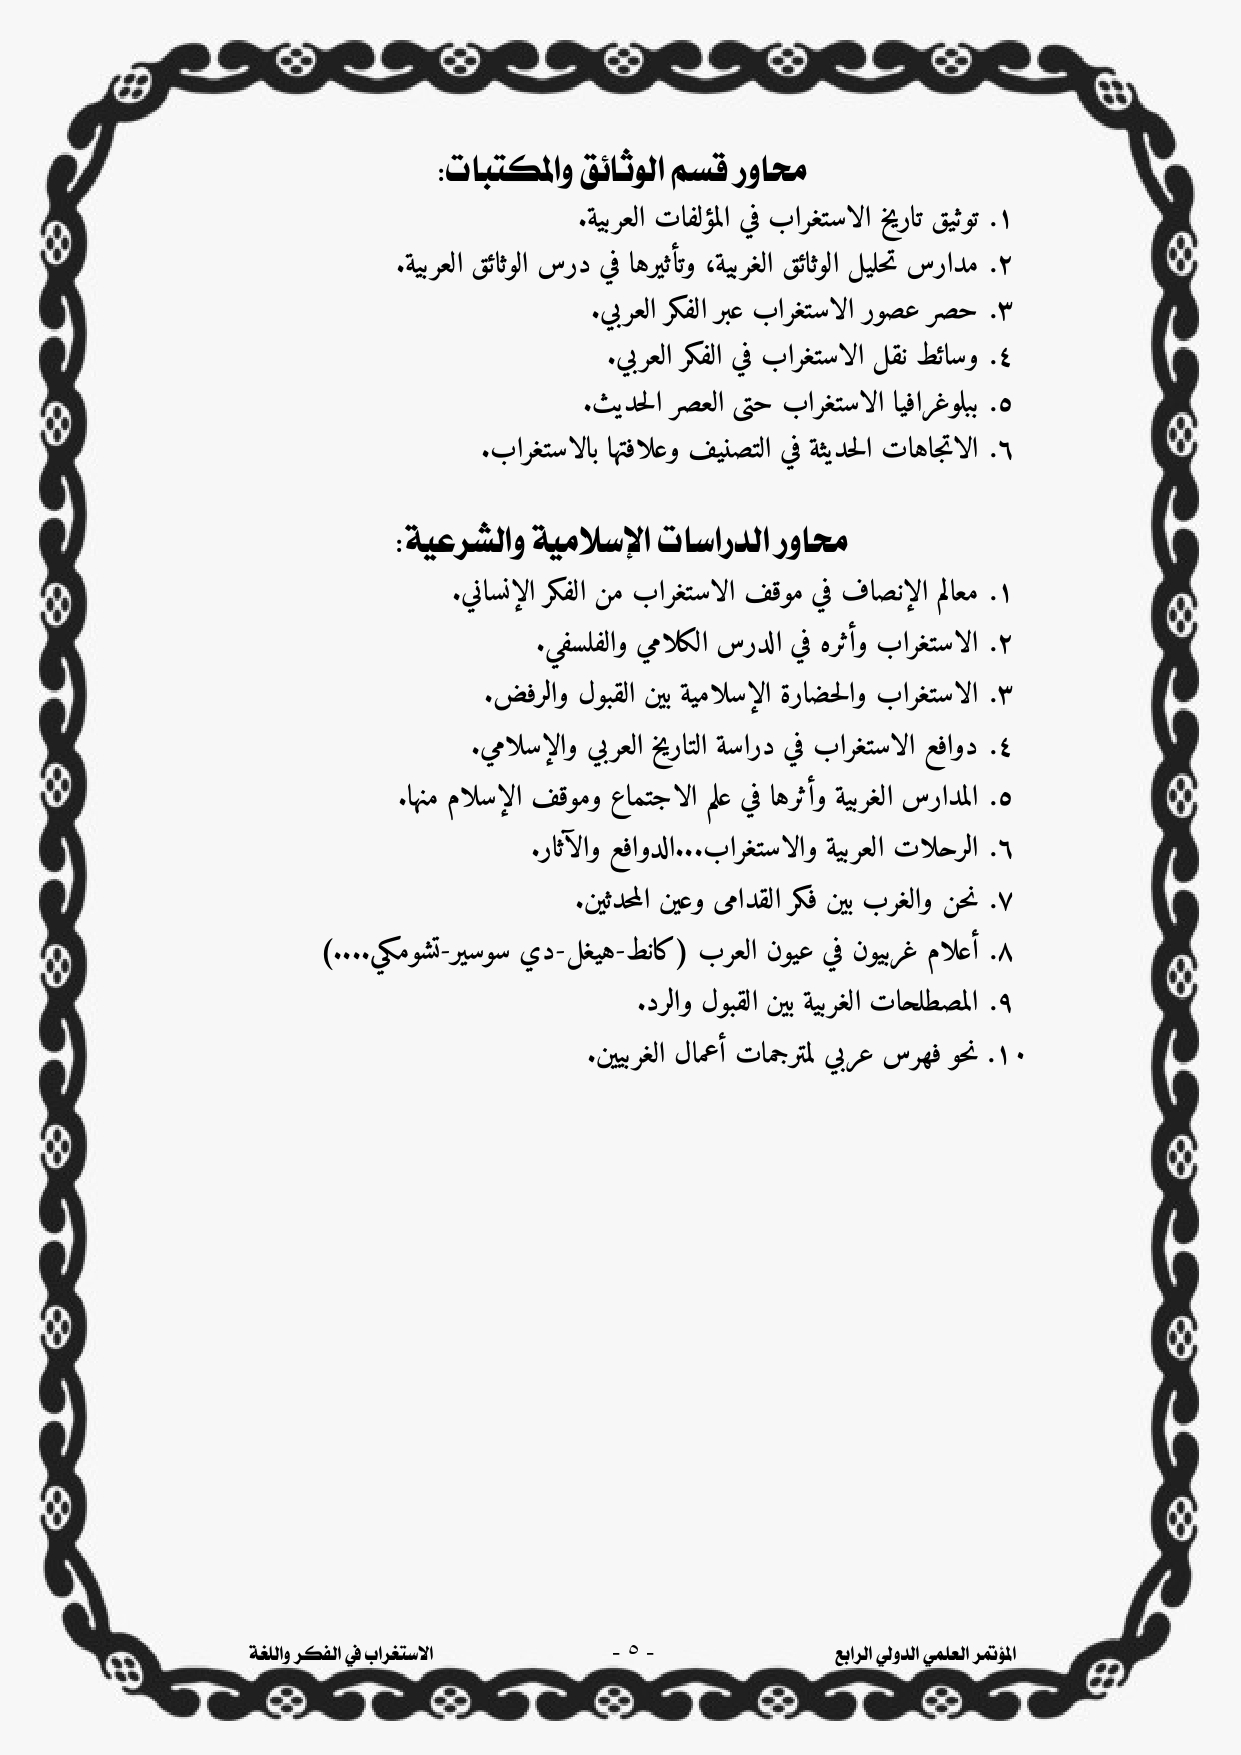 محاور قسم الوثائق والمكتبات:
١. توثيق تاريخ الاستغراب في المؤلفات العربية.
٢. مدارس تحليل الوثائق الغربية، وتأثيرها في درس الوثائق العربية.
٣. حصر عصور الاستغراب عبر الفكر العربي.
٤. وسائط نقل الاستغراب في الفكر العربي.
٥. ببلوغرافيا الاستغراب حتى العصر الحديث.
٦. الاتجاهات الحديثة في التصنيف وعلاقتها بالاستغراب.
محاور الدراسات الإسلامية والشرعية:
١. معالم الإنصاف في موقف الاستغراب من الفكر الإنساني.
٢. الاستغراب وأثره في الدرس الكلامي والفلسفي.
٣. الاستغراب والحضارة الإسلامية بين القبول والرفض.
٤. دوافع الاستغراب في دراسة التاريخ العربي والإسلامي.
٥. المدارس الغربية وأثرها في علم الاجتماع وموقف الإسلام منها.
٦. الرحلات العربية والاستغراب...الدوافع والآثار.
٧. نحن والغرب بين فكر القدامى وعين المحدثين.
٨. أعلام غربيون في عيون العرب (كانط-هيغل-دي سوسير-تشومكي....)
٩. المصطلحات الغربية بين القبول والرد.
١٠. نحو فهرس عربي لمترجمات أعمال الغربيين.
المؤتمر العلمي الدولي الرابع - ٥ - الاستغراب في الفكر واللغة